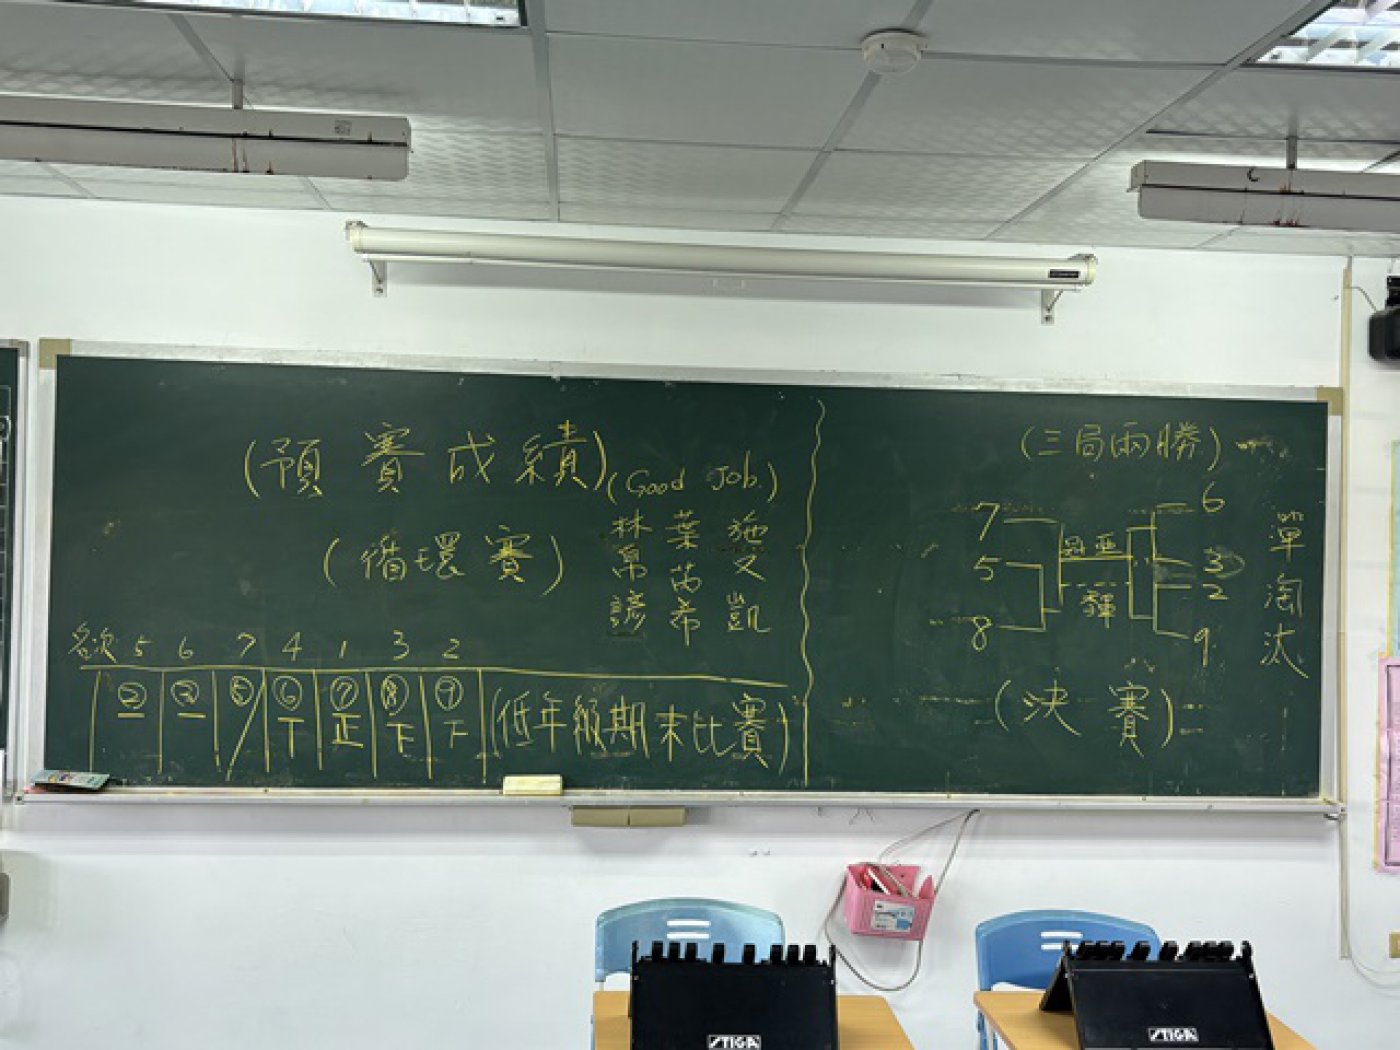 (預賽成績)
(Good Job.)
(循環賽)
林帛諺
葉芮希
施旻凱
名次 5 6 7 4 1 3 2
② ③ ⑤ ⑥ ⑦ ⑧ ⑨
一 一 丅 正 下 下
(低年級期末比賽)
(三局兩勝)
7 6
5 3
2
8 9
單淘汰
(決賽)
STIGA
STIGA